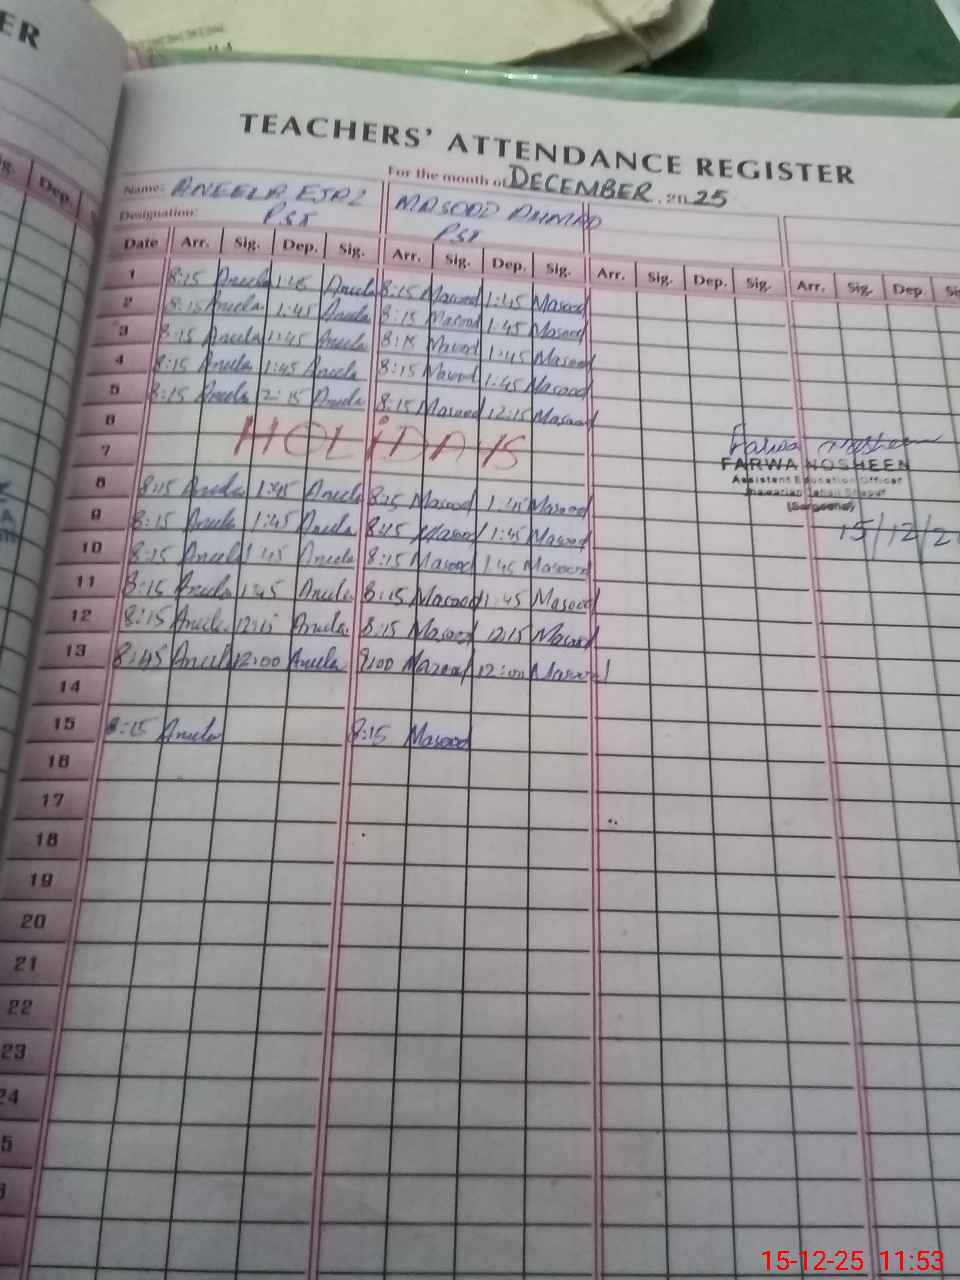 ER
TEACHERS' ATTENDANCE REGISTER
For the month of DECEMBER, 2025
Name: ANEELA EJAZ MASOOD AHMAD
Designation: PST PST
Dep.
Date Arr. Sig. Dep. Sig. Arr. Sig. Dep. Sig. Arr. Sig. Dep. Sig. Arr. Sig. Dep.
1 8:15 Aneela 1:45 Aneela 8:15 Masood 1:45 Masood
2 8:15 Aneela 1:45 Aneela 8:15 Masood 1:45 Masood
3 8:15 Aneela 1:45 Aneela 8:15 Masood 1:45 Masood
4 8:15 Aneela 1:45 Aneela 8:15 Masood 1:45 Masood
5 8:15 Aneela 2:15 Aneela 8:15 Masood 12:15 Masood
6
7 HOLIDAYS
Farwa Nosheen
FARWA NOSHEEN
Assistant Education Officer
(Sargodha)
15/12/2
8 8:15 Aneela 1:45 Aneela 8:15 Masood 1:45 Masood
9 8:15 Aneela 1:45 Aneela 8:15 Masood 1:45 Masood
10 8:15 Aneela 1:45 Aneela 8:15 Masood 1:45 Masood
11 8:15 Aneela 1:45 Aneela 8:15 Masood 1:45 Masood
12 8:15 Aneela 12:15 Aneela 8:15 Masood 12:15 Masood
13 8:45 Aneela 12:00 Aneela 9:00 Masood 12:00 Masood
14
15 8:15 Aneela 8:15 Masood
16
17
18
19
20
21
22
23
24
5
15-12-25 11:53